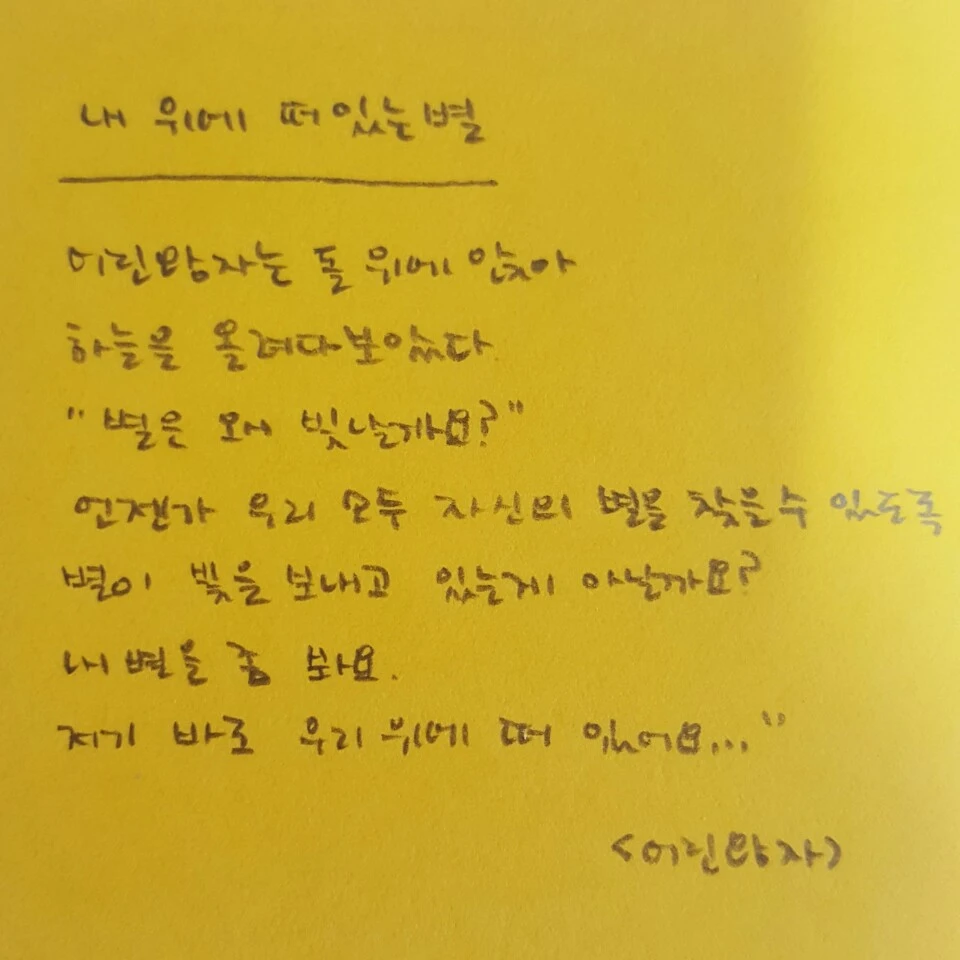 내 위에 떠있는 별
어린왕자는 돌 위에 앉아
하늘을 올려다보았다
"별은 왜 빛날까요?"
언젠가 우리 모두 자신의 별을 찾을 수 있도록
별이 빛을 보내고 있는게 아닐까요?
내 별을 좀 봐요.
저기 바로 우리 위에 떠 있어요..."
<어린왕자>